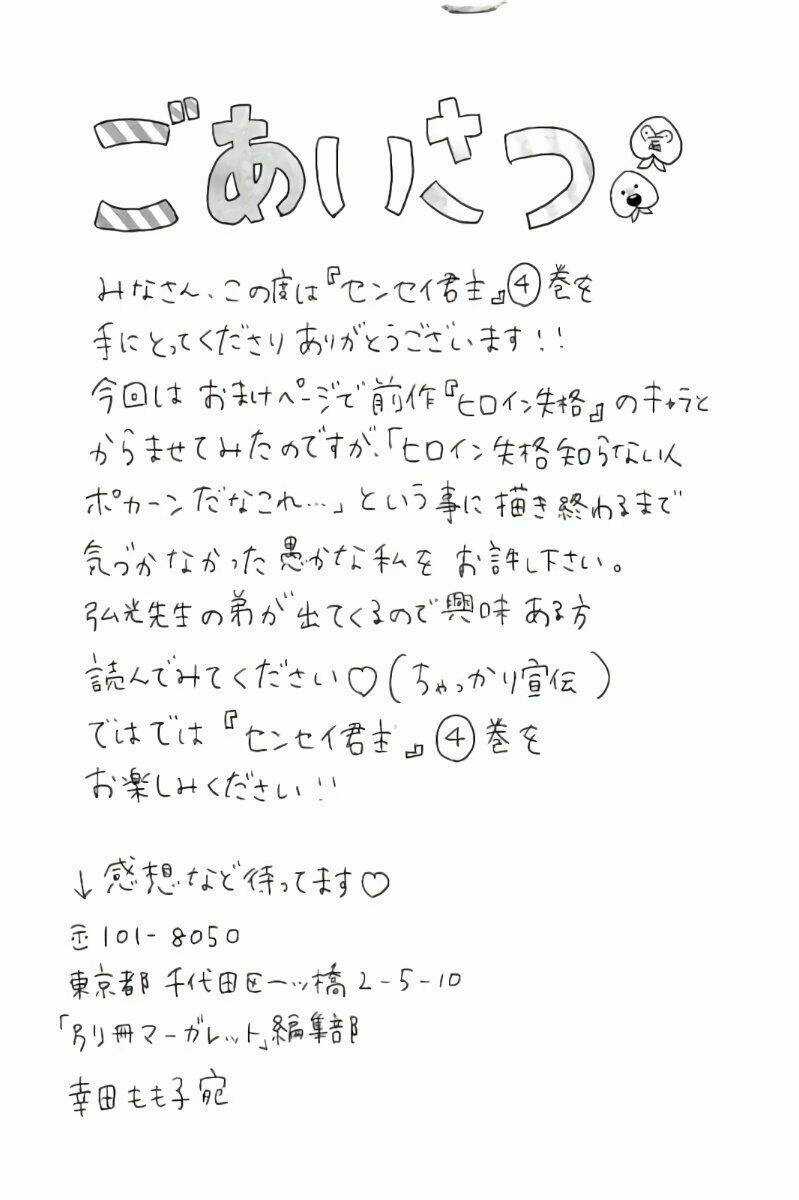 ごあいさつ
みなさん、この度は『センセイ君主』④巻を
手にとってくださりありがとうございます!!
今回はおまけページで前作『ヒロイン失格』のキャラと
からませてみたのですが、「ヒロイン失格知らない人
ポカーンだなこれ…」という事に描き終わるまで
気づかなかった愚かな私をお許し下さい。
弘光先生の弟が出てくるので興味ある方
読んでみてください♡(ちゃっかり宣伝)
ではでは『センセイ君主』④巻を
お楽しみください!!
↓感想など待ってます♡
〒101-8050
東京都千代田区一ッ橋2-5-10
「別冊マーガレット」編集部
幸田もも子宛